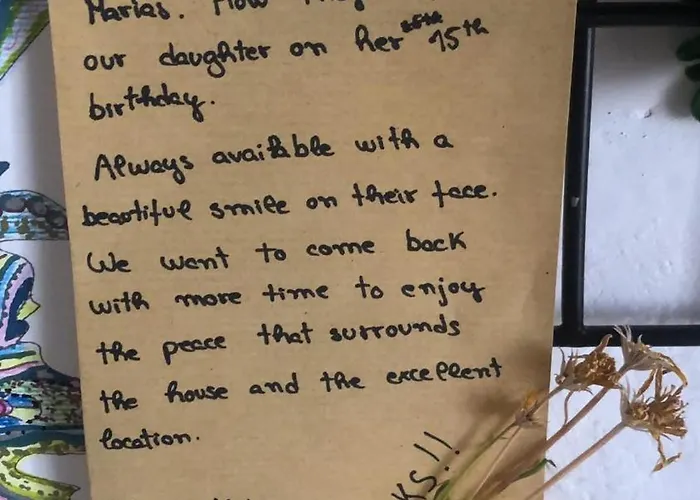 Marias. How
our daughter on her 15th
birthday.
Always available with a
beautiful smile on their face.
We want to come back
with more time to enjoy
the peace that surrounds
the house and the excellent
location.